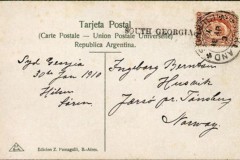 Tarjeta Postal
(Carte Postale — Union Postale Universelle)
Republica Argentina.
SOUTH GEORGIA
Syd Georgia
30te Jan 1910
Hilsen
Søren
Ingeborg Berntsen
Husvik
Jarsö pr. Tönsberg
Norway.
Edicion Z. Fumagalli, B.-Aires.